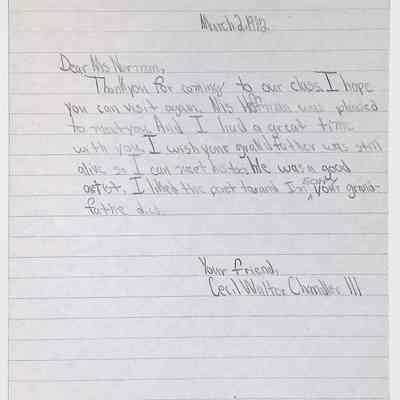 March 2, 1992
Dear Ms Norman,
Thankyou for coming to our class. I hope
you can visit again. Ms Hoffman was pleased
to meet you. And I had a great time
with you. I wish your grandfather was still
alive so I can meet him too. He was a good
artist. I liked the and I'm sorry your grand-
fathe died.
Your friend,
Cecil Walter Chandler III